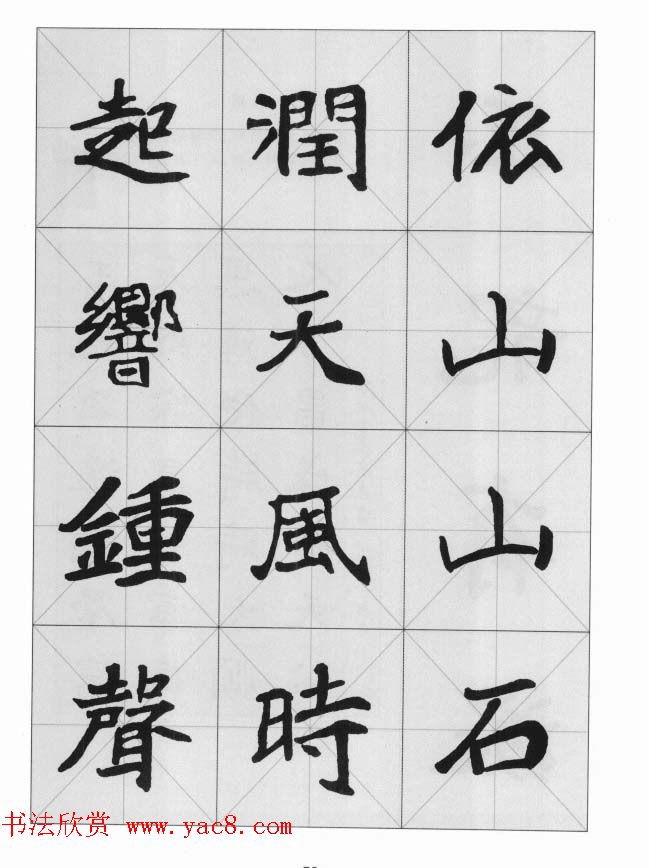 依山山石
潤天風時
起響鍾聲
书法欣赏 www.yac8.com